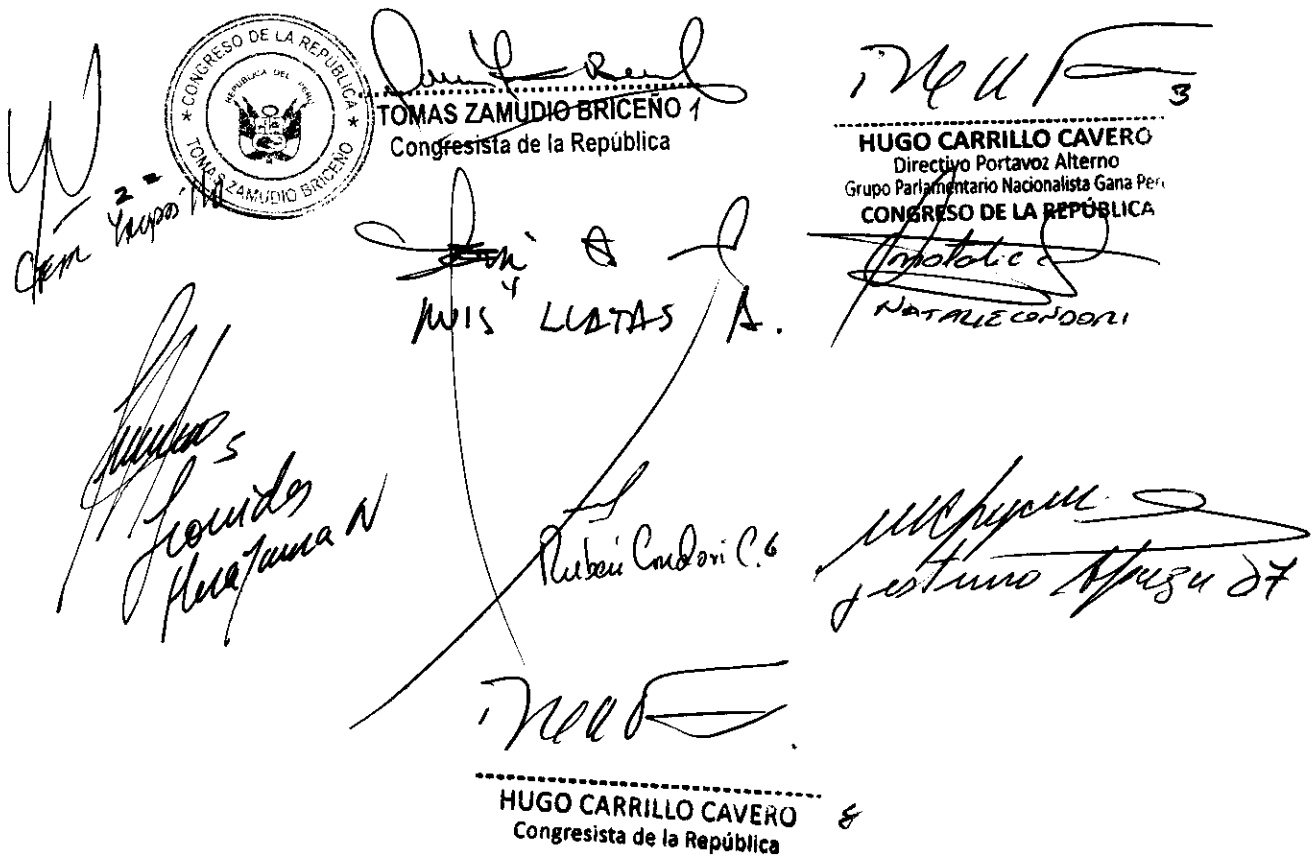 CONGRESO DE LA REPÚBLICA
REPUBLICA DEL PERÚ
TOMAS ZAMUDIO BRICEÑO
TOMAS ZAMUDIO BRICEÑO 1
Congresista de la República
3
HUGO CARRILLO CAVERO
Directivo Portavoz Alterno
Grupo Parlamentario Nacionalista Gana Perú
CONGRESO DE LA REPÚBLICA
2
4
LUIS LLATAS A.
NATALIE CONDORI
5
Leonidas
Huayama N
Rubén Condori C. 6
Justino Apaza 7
HUGO CARRILLO CAVERO 8
Congresista de la República